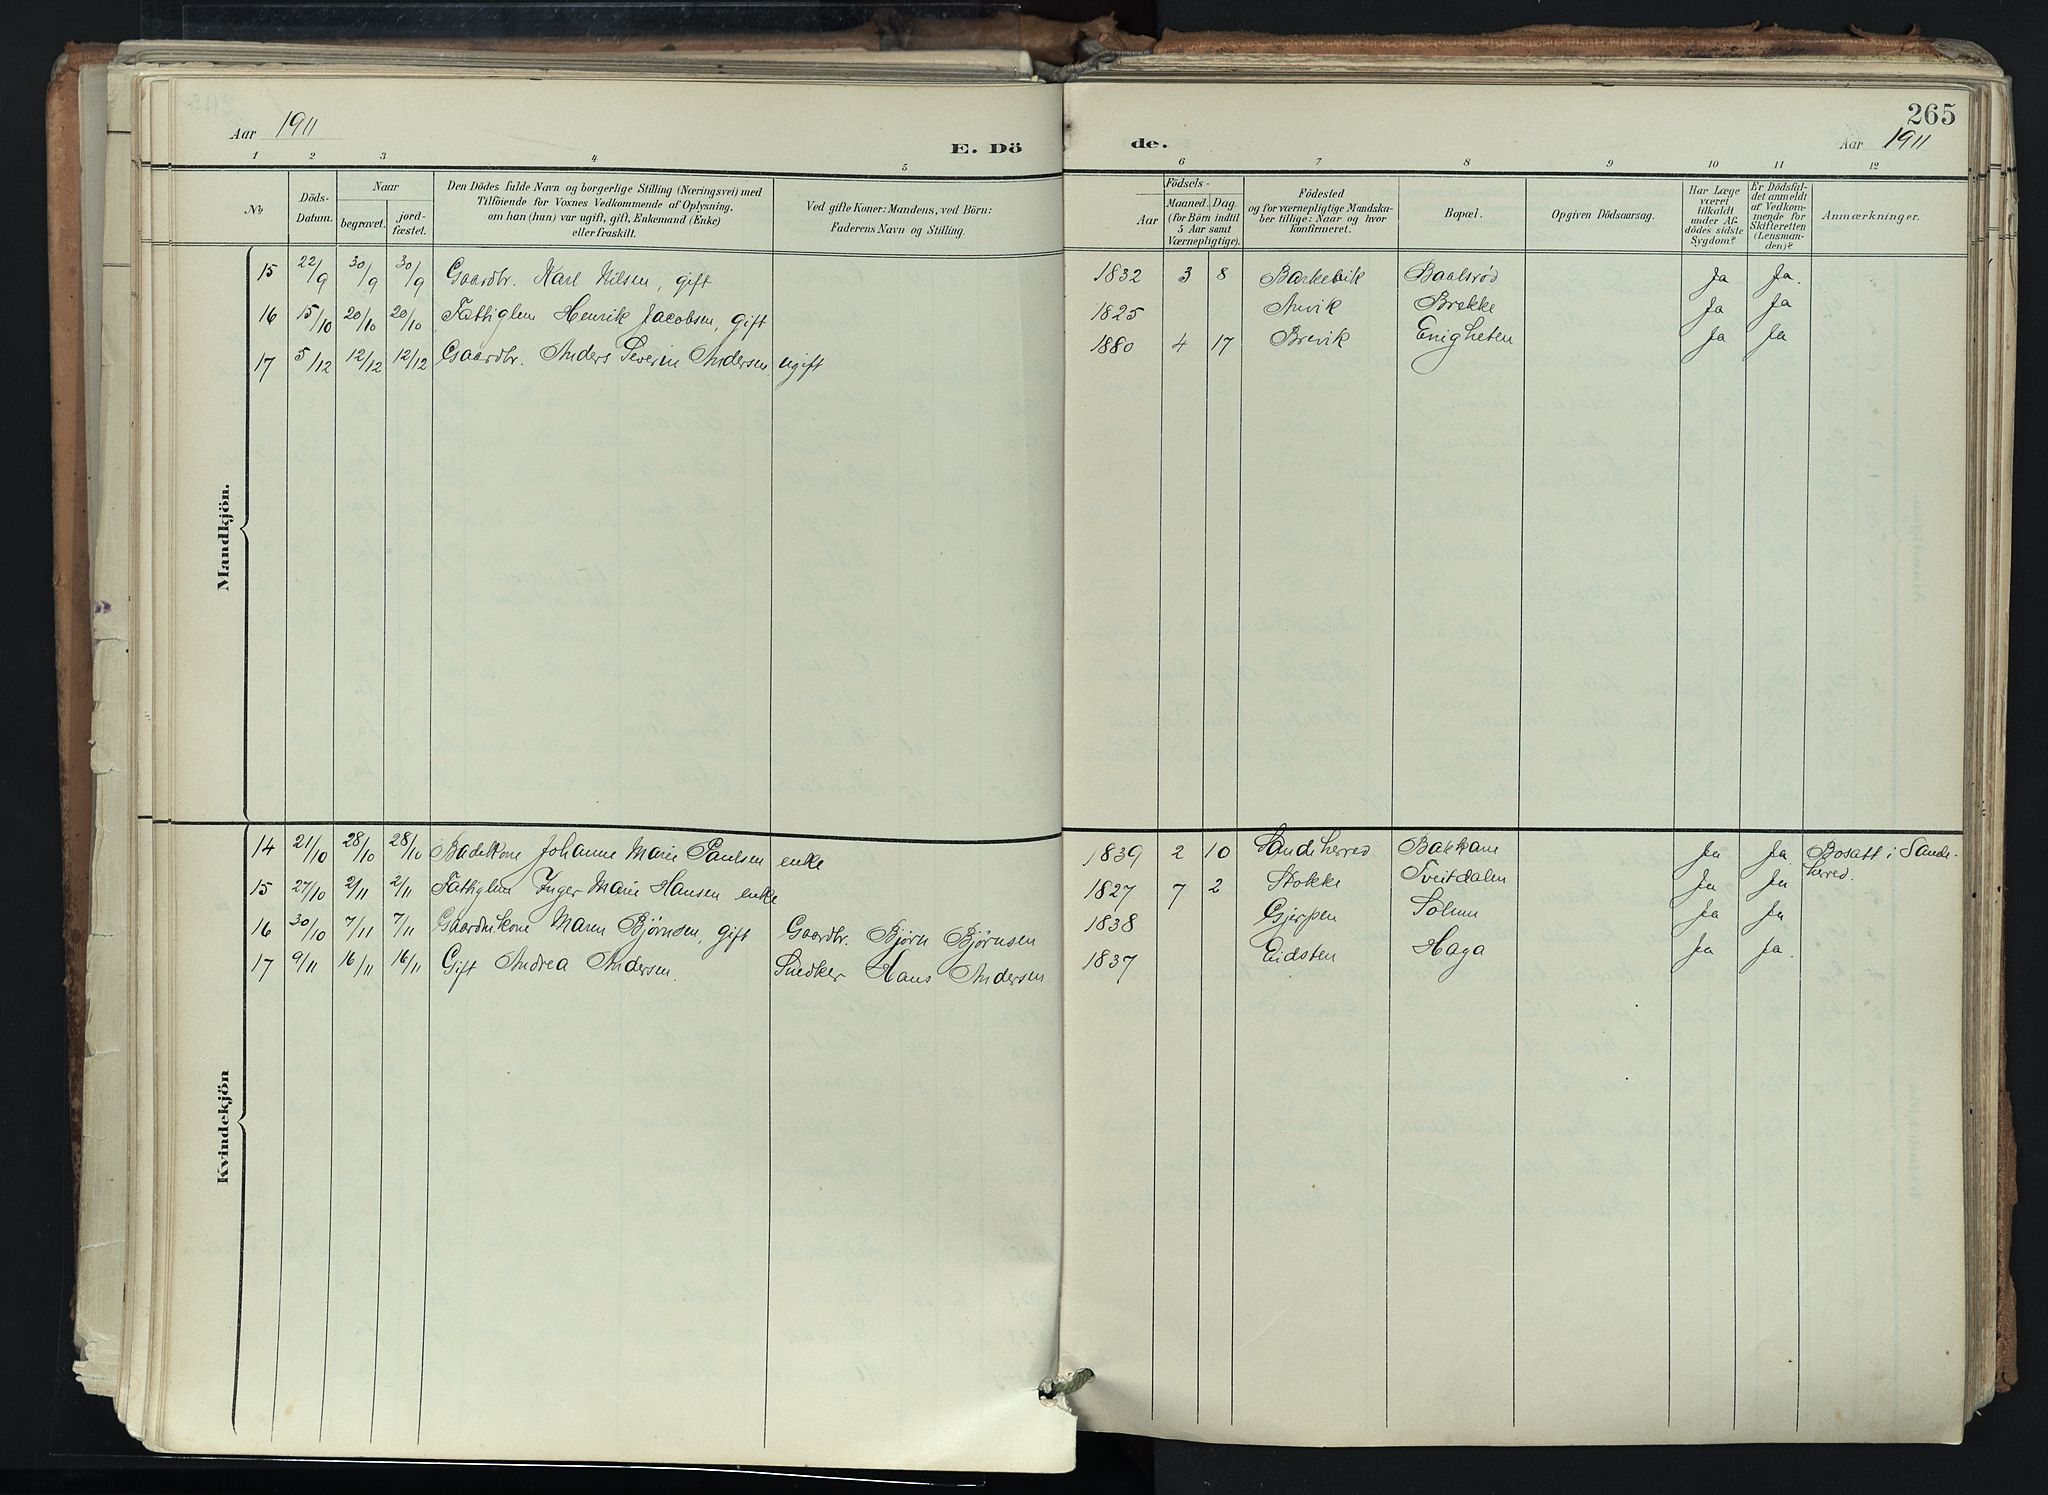 Aar 1911
E. Dö
de.
265
Aar 1911
1 2 3 4 5 6 7 8 9 10 11 12
No
Döds-
Datum.
Naar
begravet.
jord-
fæstet.
Den Dödes fulde Navn og borgerlige Stilling (Næringsvei) med
Tilföiende for Voxnes Vedkommende af Oplysning,
om han (hun) var ugift, gift, Enkemand (Enke)
eller fraskilt.
Ved gifte Koner: Mandens, ved Börn:
Faderens Navn og Stilling.
Födsels-
Aar
Maaned.
Dag.
(for Börn indtil
5 Aar samt
Værnepligtige).
Födested
og for værnepligtige Mandska-
ber tillige: Naar og hvor
konfirmeret.
Bopæl.
Opgiven Dödsaarsag.
Har Læge
været
tilkaldt
under Af-
dödes sidste
Sygdom?
Er Dödsfal-
det anmeldt
af Vedkom-
mende for
Skifteretten
(Lensman-
den)?
Anmærkninger.
Mandkjön.
15 22/9 30/9 30/9 Gaardbr. Karl Nilsen, gift 1832 3 8 Barkevik Baalsrød Ja Ja.
16 15/10 20/10 20/10 Fattiglem Henrik Jacobsen, gift 1825 Anvik Brekke Ja Ja
17 5/12 12/12 12/12 Gaardbr. Anders Severin Andersen ugift 1880 4 17 Brevik Enigheten Ja Ja
Kvindekjön
14 21/10 28/10 28/10 Badekone Johanne Marie Paulsen enke 1839 2 10 Sandeherred Bakkane Ja Ja Bosatt i Sande-
herred.
15 27/10 2/11 2/11 Fattiglem Inger Marie Hansen enke 1827 7 2 Stokke Tveitdalen Ja Ja
16 30/10 7/11 7/11 Gaardmkone Maren Bjørnsen, gift Gaardbr. Bjørn Bjørnsen 1838 Gjerpen Solum Ja Ja
17 9/11 16/11 16/11 Gift Andrea Andersen. Snedker Hans Andersen 1837 Eidsten Haga Ja Ja.